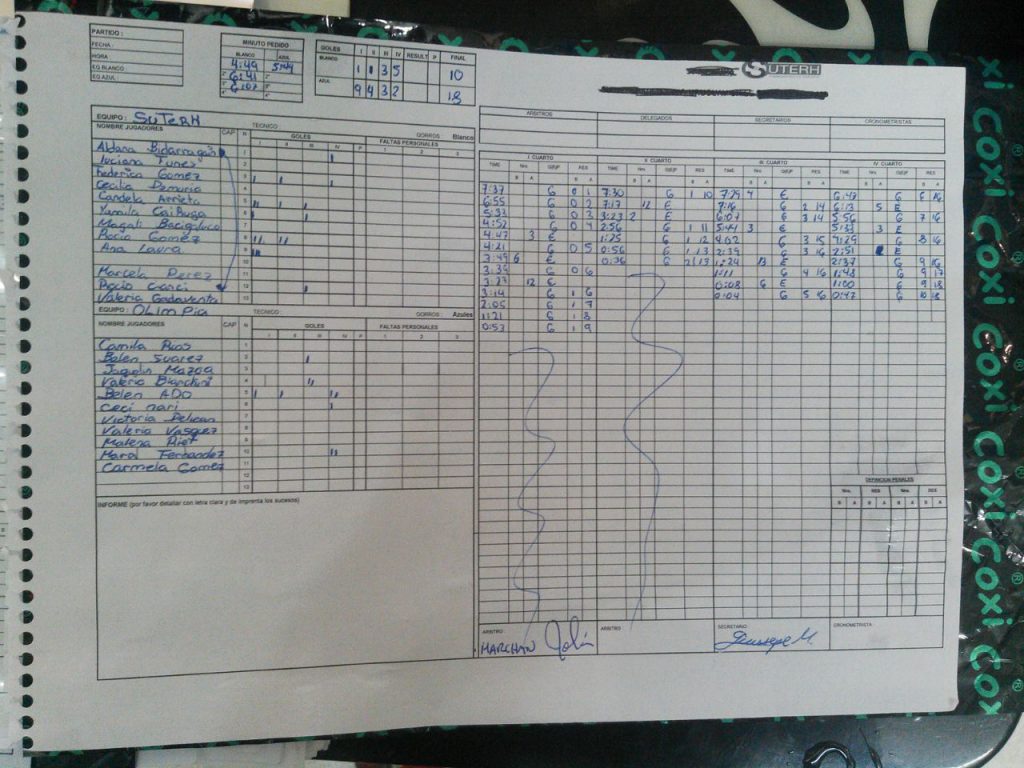 PARTIDO :
FECHA :
HORA
EQ.BLANCO
EQ.AZUL:
MINUTO PEDIDO
BLANCO AZUL
4:49 5:44
6:41
6:07
GOLES I II III IV RESULT P FINAL
BLANCO 1 1 3 5 10
AZUL 9 4 3 2 18
SUTERH
ARBITROS DELEGADOS SECRETARIOS CRONOMETRISTAS
EQUIPO : SUTERH TECNICO
NOMBRE JUGADORES CAP N GOLES FALTAS PERSONALES GORROS Blanco
I II III IV P 1 2 3
Aldana Bidarragan 1
Luciana Funes 2
Federica Gomez 3
Cecilia Demuria 4
Candela Arrieta 5
Yamila Cairuga 6
Magali Bacigaluco 7
Rocio Gomez 8
Ana Laura 9
10
Marcela Perez 11
Rocio Conci 12
Valeria Gadaventa 13
EQUIPO : OLimPia TECNICO Azules
NOMBRE JUGADORES CAP N GOLES FALTAS PERSONALES
I II III IV P 1 2 3
Camila Rios 1
Belen Suarez 2
3
Valeria Bianchini 4
Belen ADO 5
Ceci nari 6
Victoria Pelican 7
Valeria Vasquez 8
Malena Riet 9
Mara Fernandez 10
Carmela Gomez 11
12
13
INFORME (por favor detallar con letra clara y de imprenta los sucesos)
I CUARTO II CUARTO III CUARTO IV CUARTO
TIME Nro. G/E/P RES TIME Nro. G/E/P RES TIME Nro. G/E/P RES TIME Nro. G/E/P RES
B A B A B A B A B A B A B A B A
7:37 G 0 1 7:30 G 1 10 7:29 4 E 6:47 G 6 16
6:55 G 0 2 7:17 12 E 7:16 G 2 14 6:13 5 E
5:32 G 0 3 3:23 2 E 6:07 G 3 14 5:56 G 7 16
4:52 G 0 4 2:56 G 1 11 5:44 3 E 5:33 3 E
4:47 3 E 1:25 G 1 12 4:02 G 3 15 4:29 G 8 16
4:21 G 0 5 0:56 G 1 13 2:39 G 3 16 2:51 E
3:49 6 E 0:36 G 2 13 1:24 13 E 2:37 G 9 16
3:39 G 0 6 1:11 G 4 16 1:48 G 9 17
3:27 12 E 0:08 6 E 1:00 G 9 18
3:14 G 1 6 0:04 G 5 16 0:47 G 10 18
2:05 G 1 7
1:21 G 1 8
0:53 G 1 9
DEFINICION PENALES
Nro. RES Nro. RES
B A B A B A B A
ARBITRO ARBITRO SECRETARIO CRONOMETRISTA
MARCHAN
COXI